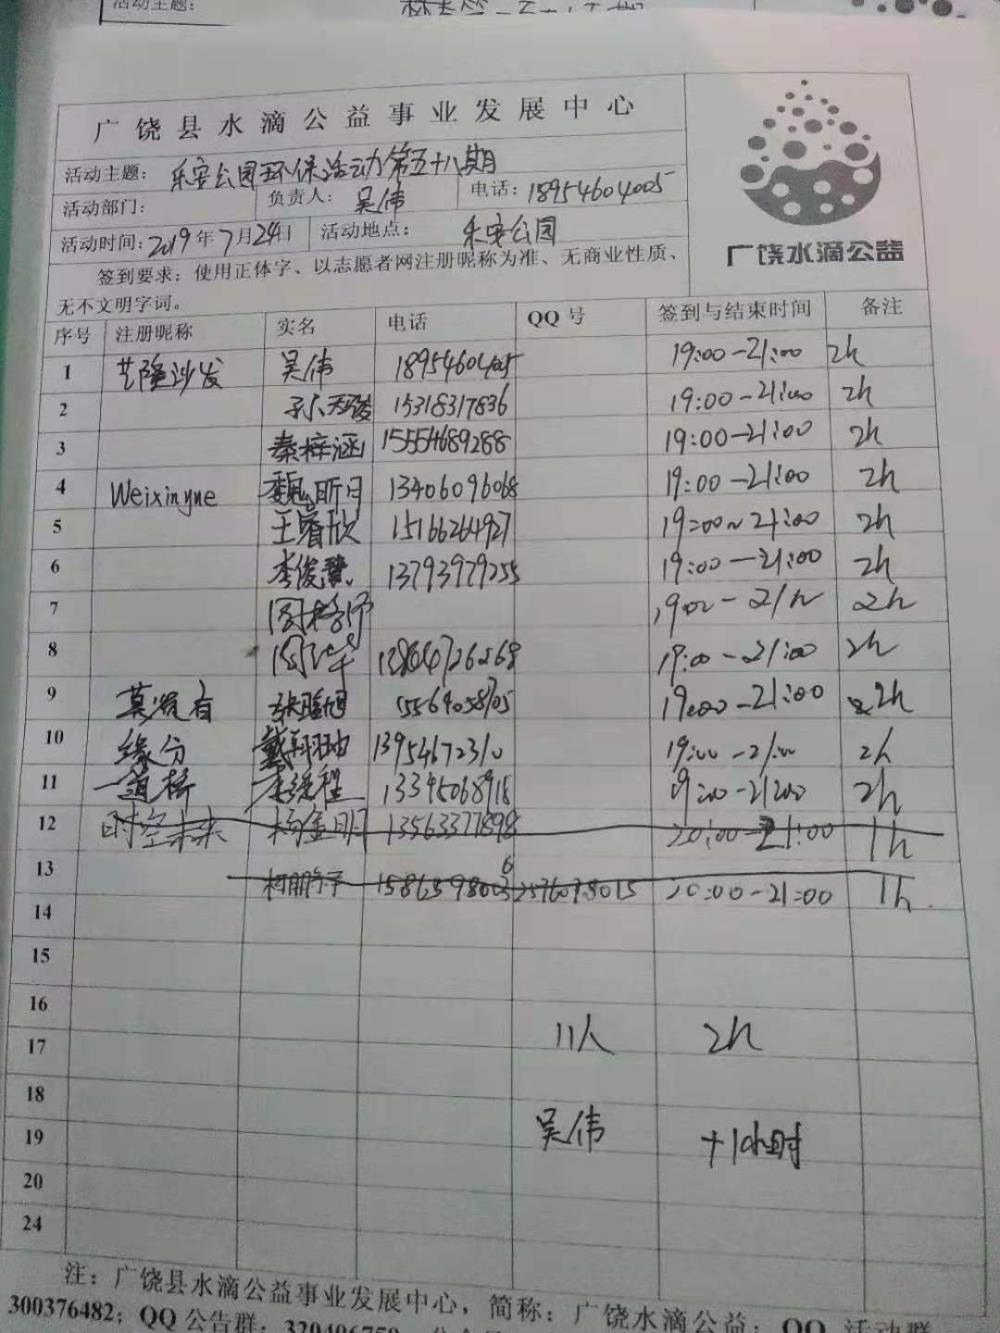 活动主题:
广饶县水滴公益事业发展中心
活动主题: 乐安公园环保活动第五十八期
活动部门: 负责人: 吴伟 电话: 18954604005
活动时间: 2019年7月24日 活动地点: 乐安公园
广饶水滴公益
签到要求: 使用正体字、以志愿者网注册昵称为准、无商业性质、
无不文明字词。
序号 注册昵称 实名 电话 QQ号 签到与结束时间 备注
1 艺隆沙发 吴伟 19:00-21:00 2h
2 15318317836 19:00-21:00 2h
3 秦梓涵 15554689288 19:00-21:00 2h
4 Weixinyue 魏昕月 13406096068 19:00-21:00 2h
5 王睿欣 15166264927 19:00~21:00 2h
6 李俊慧 13793979255 19:00-21:00 2h
7 2h
8 13864726268 19:00-21:00 2h
9 莫没有 19:00-21:00 2h
10 缘分 戴翔宇 13954672310 19:00-21:00 2h
11 一道桥 13345068918 19:00-21:00 2h
12 时空未来 杨金明 13563377898 20:00-21:00 1h
13 20:00-21:00 1h
14
15
16
11人 2h
17
18
吴伟 +1小时
19
20
24
注: 广饶县水滴公益事业发展中心, 简称: 广饶水滴公益; QQ 活动群
300376482; QQ公告群: